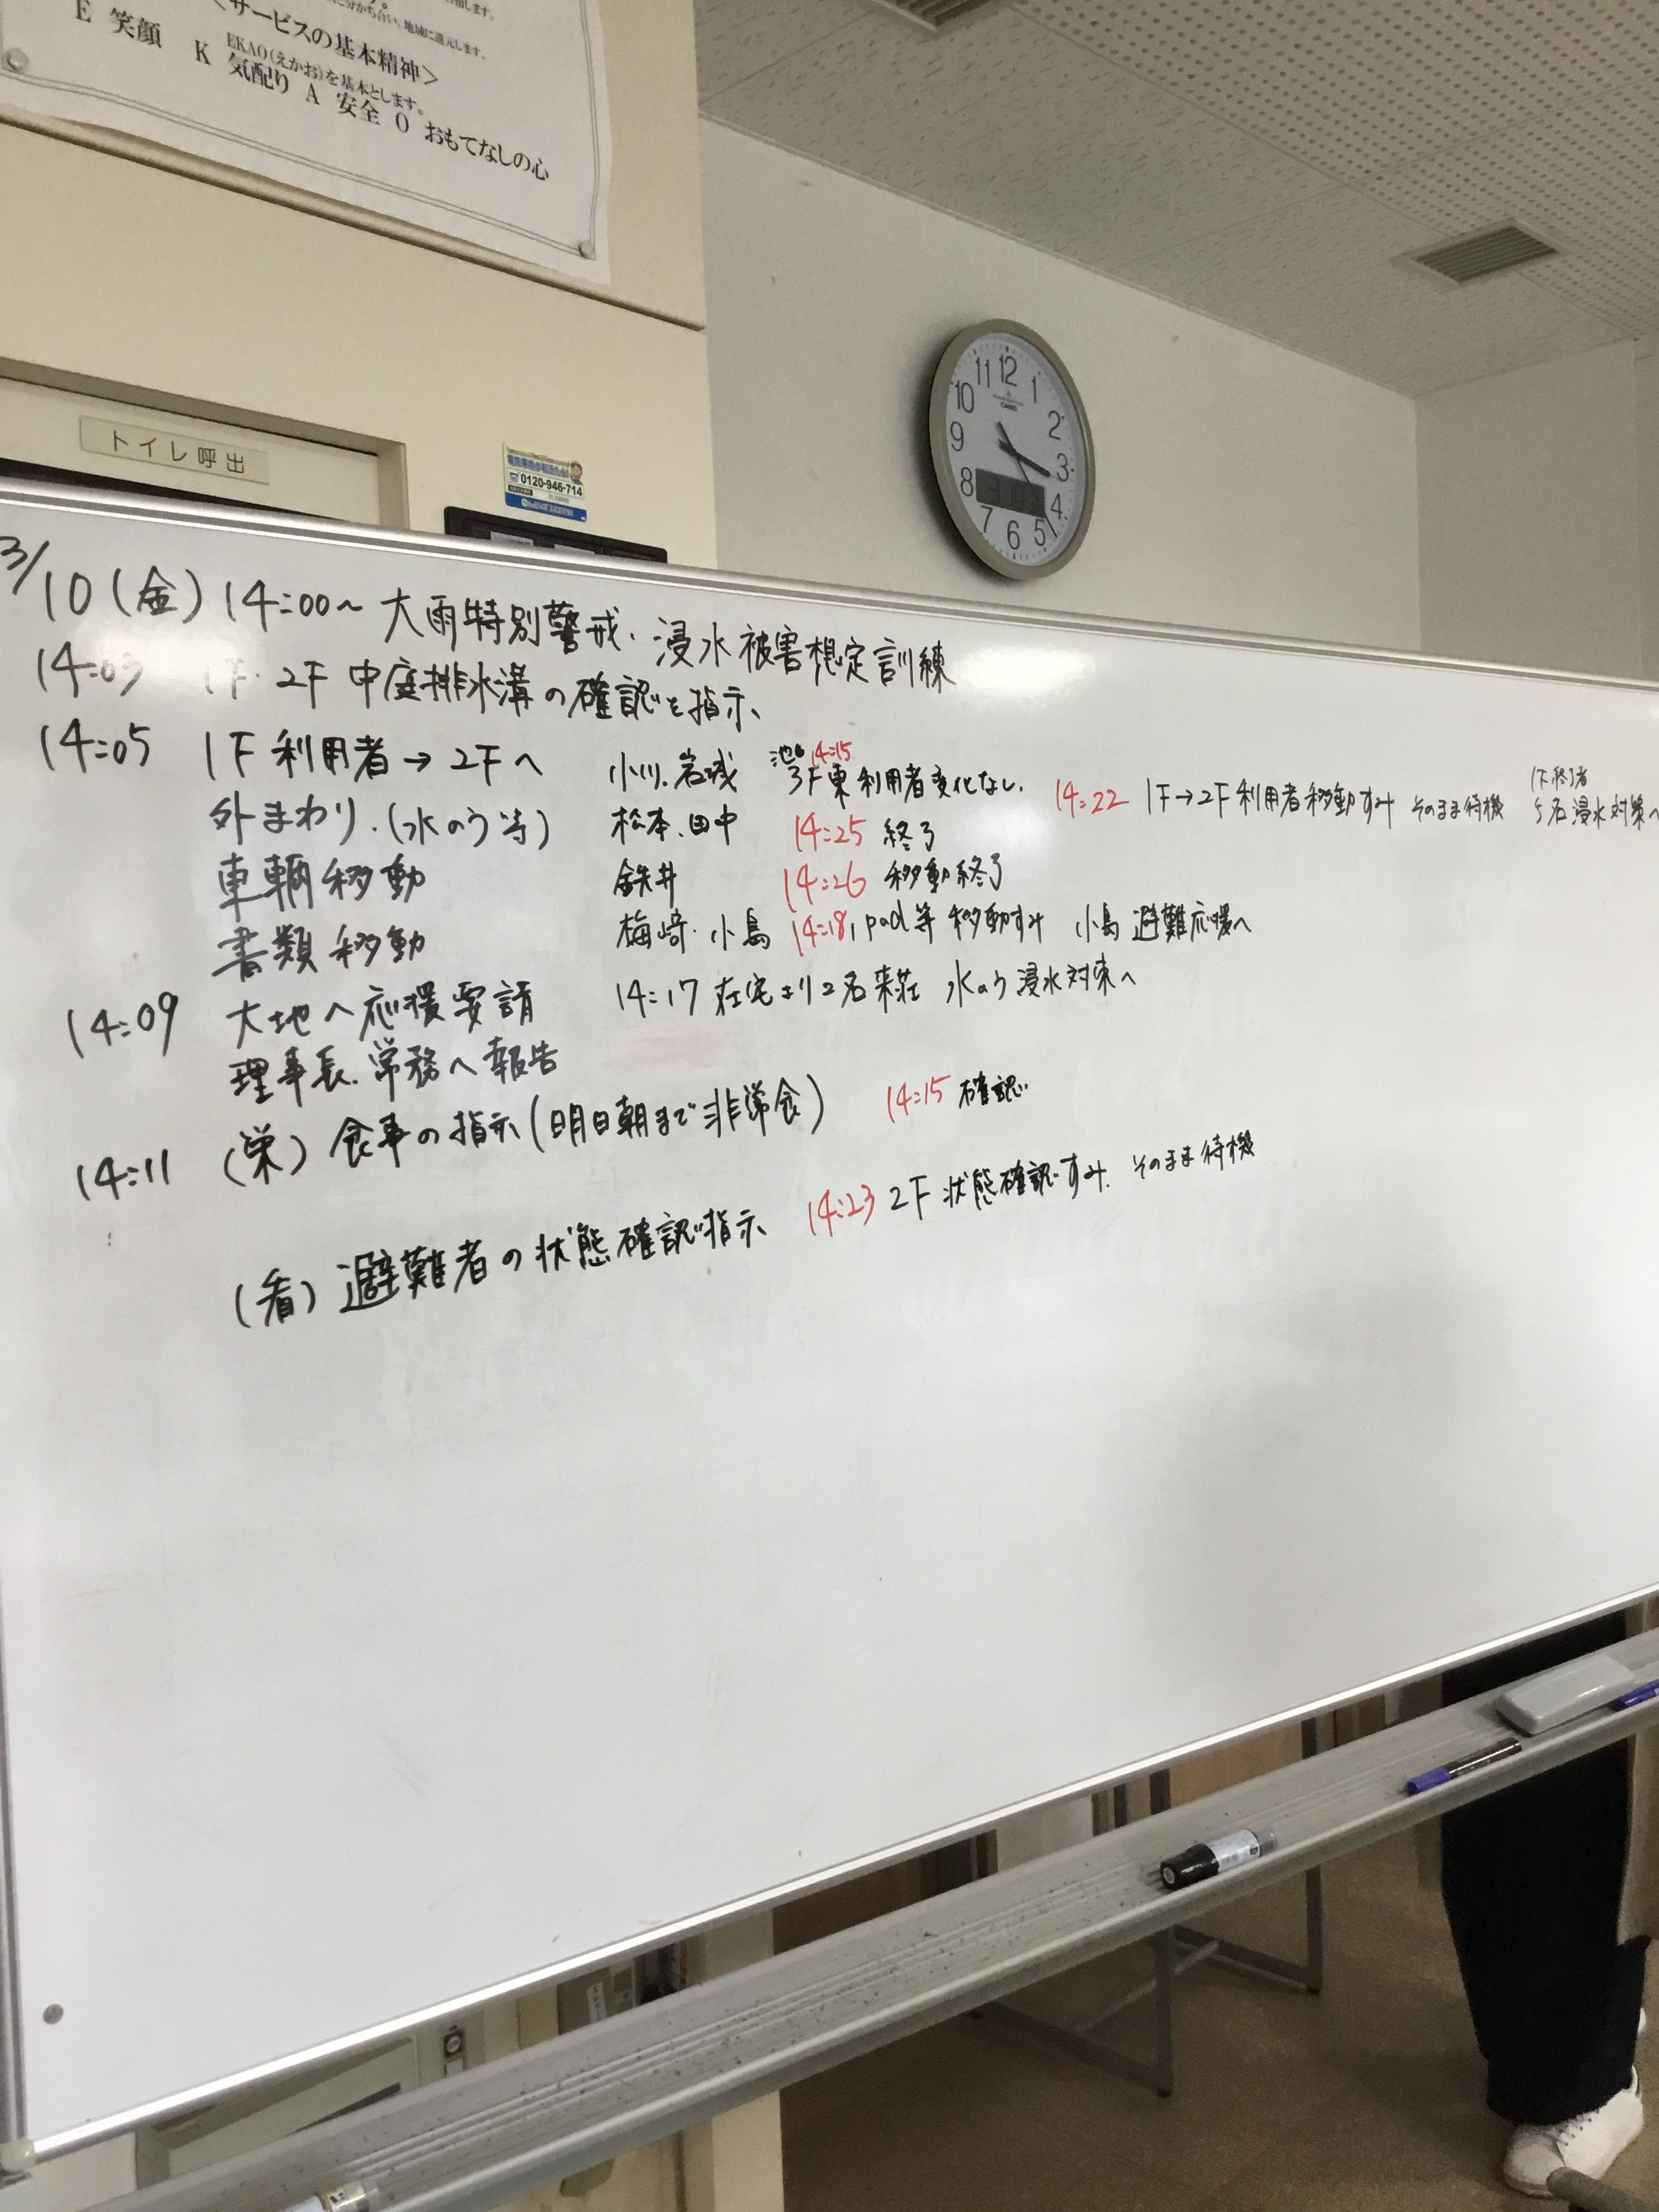 <サービスの基本精神>
EKAO(えかお)を基本とします。
E 笑顔 K 気配り A 安全 O おもてなしの心
トイレ呼出
0120-946-714
11 12 1
10 2
9 3
8 4
7 6 5
CASIO
3/10(金) 14:00~ 大雨特別警戒・浸水被害想定訓練
14:03 1F・2F 中庭排水溝の確認を指示
14:05 1F利用者→2Fへ 小川、岩城 14:15 3F東利用者変化なし、 14:22 1F→2F利用者移動すみ そのまま待機 5名浸水対策へ
外まわり、(水のう等) 松本、田中 14:25 終了
車輌移動 鉄井 14:26 移動終了
書類移動 梅﨑・小島 14:18, pad等移動すみ 小島 避難応援へ
14:09 大地へ応援要請 14:17 在宅より2名来荘 水のう浸水対策へ
理事長、常務へ報告
14:11 (栄)食事の指示(明日朝まで非常食) 14:15 確認
(看)避難者の状態確認指示 14:23 2F状態確認すみ、そのまま待機